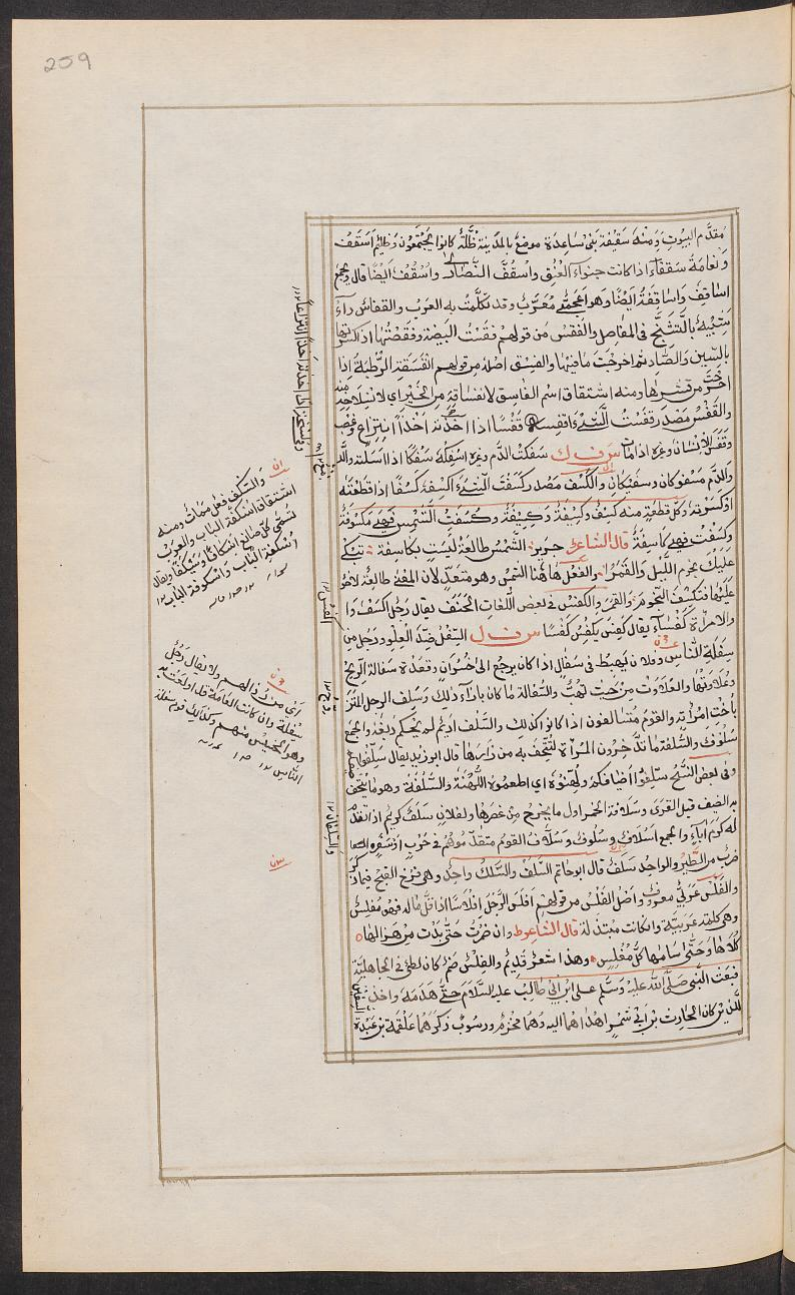 259
مقدَّم البيوت ومنه سَقيفة بنى سَاعِدة موضع بالمدينة ظُلّة كانوا يجتمعون وظليم اَسقَف
ونعامة سَقفاء اذا كانت جنواء العُنق واسقفّ النَّصارى واسْقُف اَيضًا قال ويجمع
اسَاقِف واساقفة ايضًا وهو اعجمى مُعَرَّب وقد تكلّمت به العرب والقفاس داء
شبيه بالتشنج فى المفاصِل والفقس من قولهم فقست البيضة وفقصتها اذا كسرتها
بالسّين والصّاد ثم اخرجت ما فيها والفسق اصله من قولهم انفسقت الرُّطبة اذا
خرجت من قشرها ومنه اشتقاق اسم الفاسق لانفساقه من الخير اى لانسلاخه منه
والقفس مصدر قفست الشئ اقفسه قفسًا اذا اخذته اخذا انتزاع وغصب
وقفس الانسان وغيره اذا مات س ف ك سفكت الدّم وغيره اسفكه سفكا اذا اسلته
والدّم مسفوكان وسفيكان والكسف مصدر كسفت الشئ اكسفه كسفًا اذا قطعته
او كسرته وكلّ قطعة منه كسف وكسفة وكسيفة وكسفت الشمس فهى مكسوفة
وكسفت فهى كاسفة قال الشاعر جرير الشَّمس طالعة ليست بكاسفة تبكى
عليك نجوم اللّيل والقمرا والفعل هاهنا للشمس وهو متعدٍ لان المعنى طالعة لا ضوء
عليها فتكسف النجوم والقمر والكفس فى بعض اللّغات الحنف يقال رجل اكفس وا
والامراة كفساء يقال كفس يكفس كفسًا س ف ل السفل ضدّ العلو ورجل من
سفلة النّاس وفلان يهبط فى سفال اذا كان يرجع الى خسران وقعد فى سفالة الريح
وعلاوتها والعلاوة من حيث تهبّ والسفالة ما كان بازاء ذلك وسلف الرجل المتزوج
باخت امراته والقوم متسالفون اذا كانوا كذلك والسّلف اديم لم يحكم دبغه والجمع
سُلوف والسُّلفة ما تدّخره المراة لتتحف به من زارها قال ابو زيد يقال سلّفوا ضيفكم
وفى بعض النّسخ سلّفوا اضيافكم ولهنوه اى اطعموه اللُّهنة والسُّلفة وهو ما يتحف
به الضيف قبل القرى وسلافة الخمر اول ما يخرج من عصرها ولفلان سلف كريم اذا تقدم
له كرم اباء والجمع اسلاف وسلوف وسلّاف القوم متقدّموهم فى حرب او سفر
ضرب من الطير والواحد سلف قال ابو حاتم السّلف والسّلك واحد وهى فرخ القبج فيما ذكر
والفَلس عربىّ معروف واصل الفلس من قولهم افلس الرّجل افلاسًا اذا قلّ ماله فهو مفلس
وهى كلمة عربيّة وان كانت مبتذلة قال الشاعر وان ضمرت حتى بدت من هزالها
كلاها وحتّى سامها كلّ مفلس وهذا شعر قديم والفلس صنم كان لطئ فى الجاهلية
فبعث النّبى صلّى الله عليه وسلّم على ابن ابى طالب عليه السّلام حتّى هدمه واخذ السيفين
اللذين كان الحارث بن ابى شمر اهداهما اليه وهما مخذم ورسوب ذكرهما علقمة بن عبدة
والسّكف فعل ممات ومنه
اشتقاق اسكفّة الباب والعرب
تسمّى كلّ صانع اسكافا وسيكفًا ويقال
اسكفّة الباب واسكوفة الباب
اى من ذا لهم ولا يقال رجل
سفلة وان كانت العامة قد اولعت به
وهو الخسيس منهم وكذلك قوم سفلة
الناس